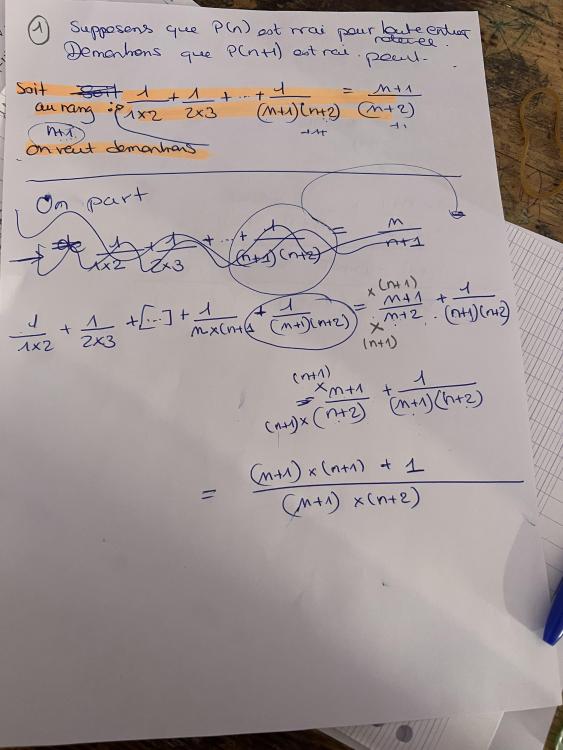 ① Supposons que P(n) est vrai pour toute entier naturel
Démontrons que P(n+1) est vrai. pour.
Soit 1/(1×2) + 1/(2×3) + ... + 1/((n+1)(n+2)) = (n+1)/(n+2)
au rang :
n+1
on veut demontrons
On part
→ 1/(1×2) + 1/(2×3) + ... + 1/((n+1)(n+2)) = n/(n+1)
1/(1×2) + 1/(2×3) + [...] + 1/(n×(n+1) + 1/((n+1)(n+2)) = (n+1)/(n+2) ×(n+1)/×(n+1) + 1/((n+1)(n+2))
= (n+1)× (n+1)/(n+1)×(n+2) + 1/((n+1)(n+2))
= ((n+1)×(n+1) + 1)/((n+1)×(n+2))